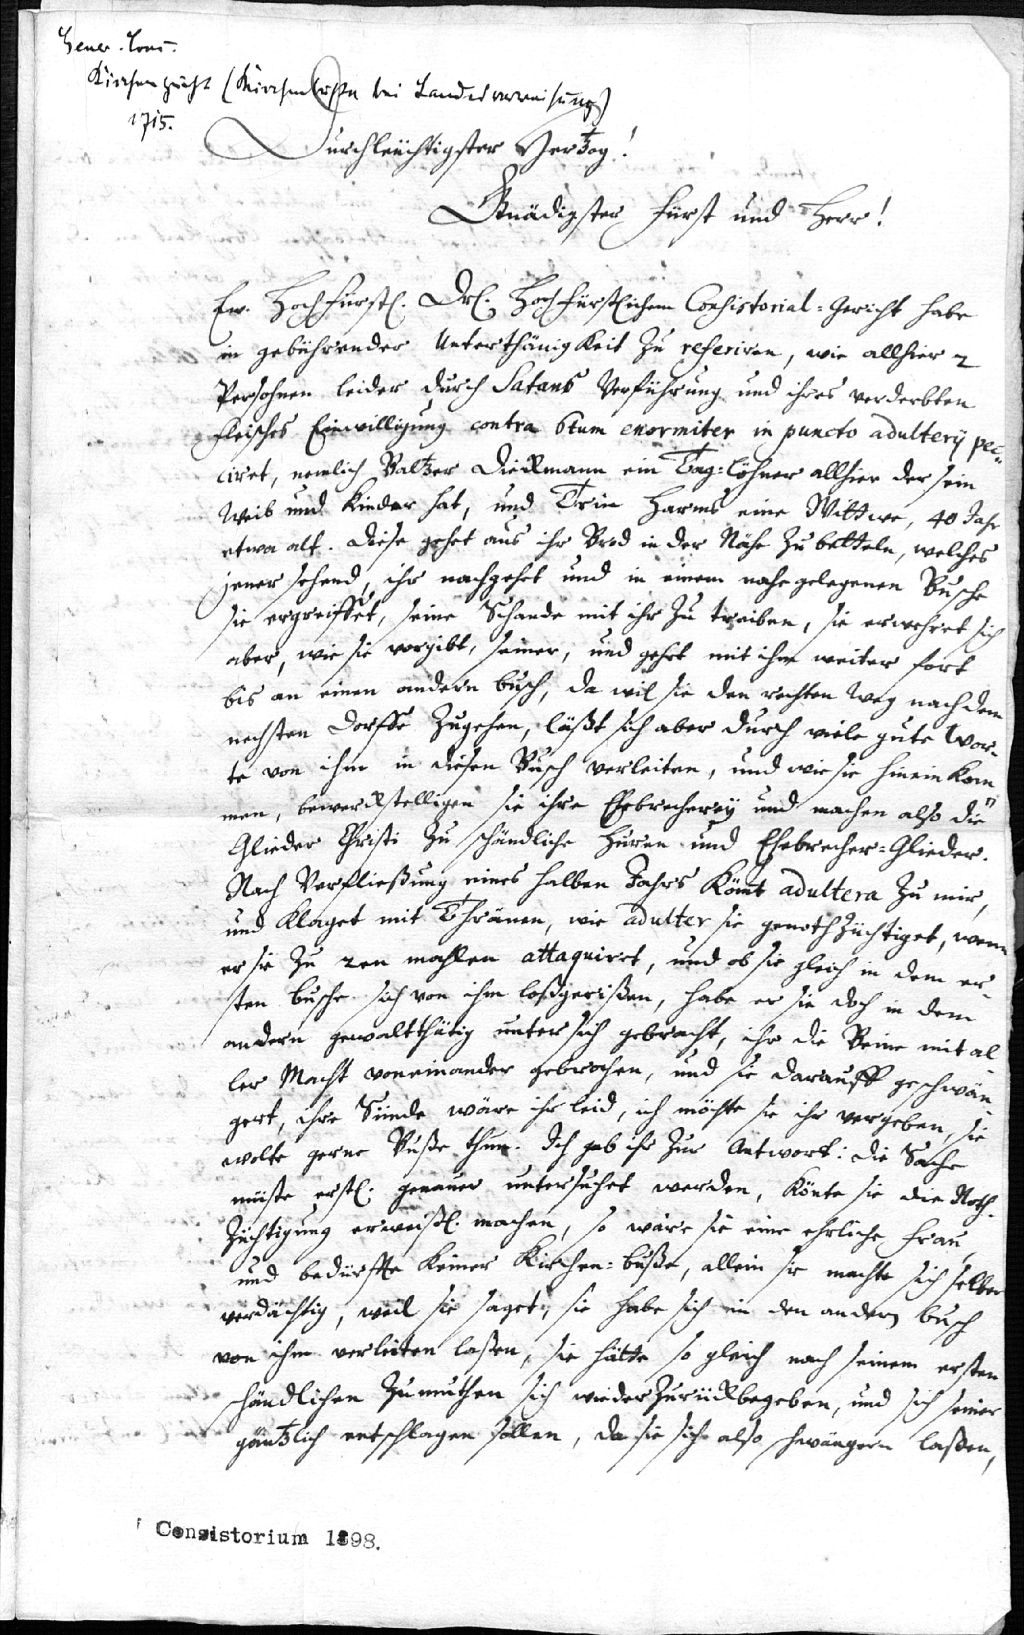 Gener. Cons.
Kirchenzucht (Kirchenbuße bei Landesverweisung)
1715.
Durchleüchtigster Hertzog!
Gnädigster Fürst und Herr!
Ew. Hochfürstl. Drl. Hochfürstlichem Consistorial-Gericht habe
in gebührender Unterthänigkeit zu referiren, wie allhier 2
Persohnen leider durch Satans Verführung und ihres verderbten
Fleisches Einwilligung contra 6tum enormiter in puncto adulterÿ pec-
ciret, nemlich Baltzer Dieckmann ein Tag-löhner allhier der sein
Weib und Kinder hat, und Trin Harms eine Wittwe, 40 Jahr
etwa alt. Diese gehet aus ihr Brod in der Nähe zu betteln, welches
jener sehend, ihr nachgehet und in einem nahe gelegenen Busche
sie ergreiffet, seine Schande mit ihr zu treiben, sie erwehret sich
aber, wie sie vorgibt, seiner, und gehet mit ihm weiter fort
bis an einen andern busch, da wil sie den rechten Weg nach dem
nechsten Dorffe zugehen, läßt sich aber durch viele gute Wor-
te von ihm in diesen Busch verleiten, und wie sie hinein kom
men, bewerckstelligen sie ihre Ehebrecherey und machen also die
Glieder Christi zu schändliche Huren und Ehebrecher-Glieder.
Nach Verfließung eines halben Jahrs kömt adultera zu mir,
und klaget mit Thränen, wie adulter sie genothzüchtiget, wenn
er sie zu 2en mahlen attaquiret, und ob sie gleich in dem er-
sten busche sich von ihm loßgerißen, habe er sie doch in dem
andern gewaltthätig unter sich gebracht, ihr die Beine mit al
ler Macht voneinander gebrochen, und sie darauff geschwän-
gert, ihre Sünde wäre ihr leid, ich möchte sie ihr vergeben, sie
wolte gerne Buße thun. Ich gab ihr zur Antwort: die Sache
müste erstl. genauer untersuchet werden, könte sie die Noth-
züchtigung erweißl. machen, so wäre sie eine ehrliche Frau,
und bedürffte keiner Kirchen-buße, allein sie machte sich selber
verdächtig, weil sie saget, sie habe sich in den andern busch
von ihm verleiten laßen, sie hätte so gleich nach seinem ersten
schändlichen Zumuthen sich wieder zurückbegeben, und sich seiner
gäntzlich entschlagen sollen, da sie sich also schwängern laßen,
Consistorium 1898.